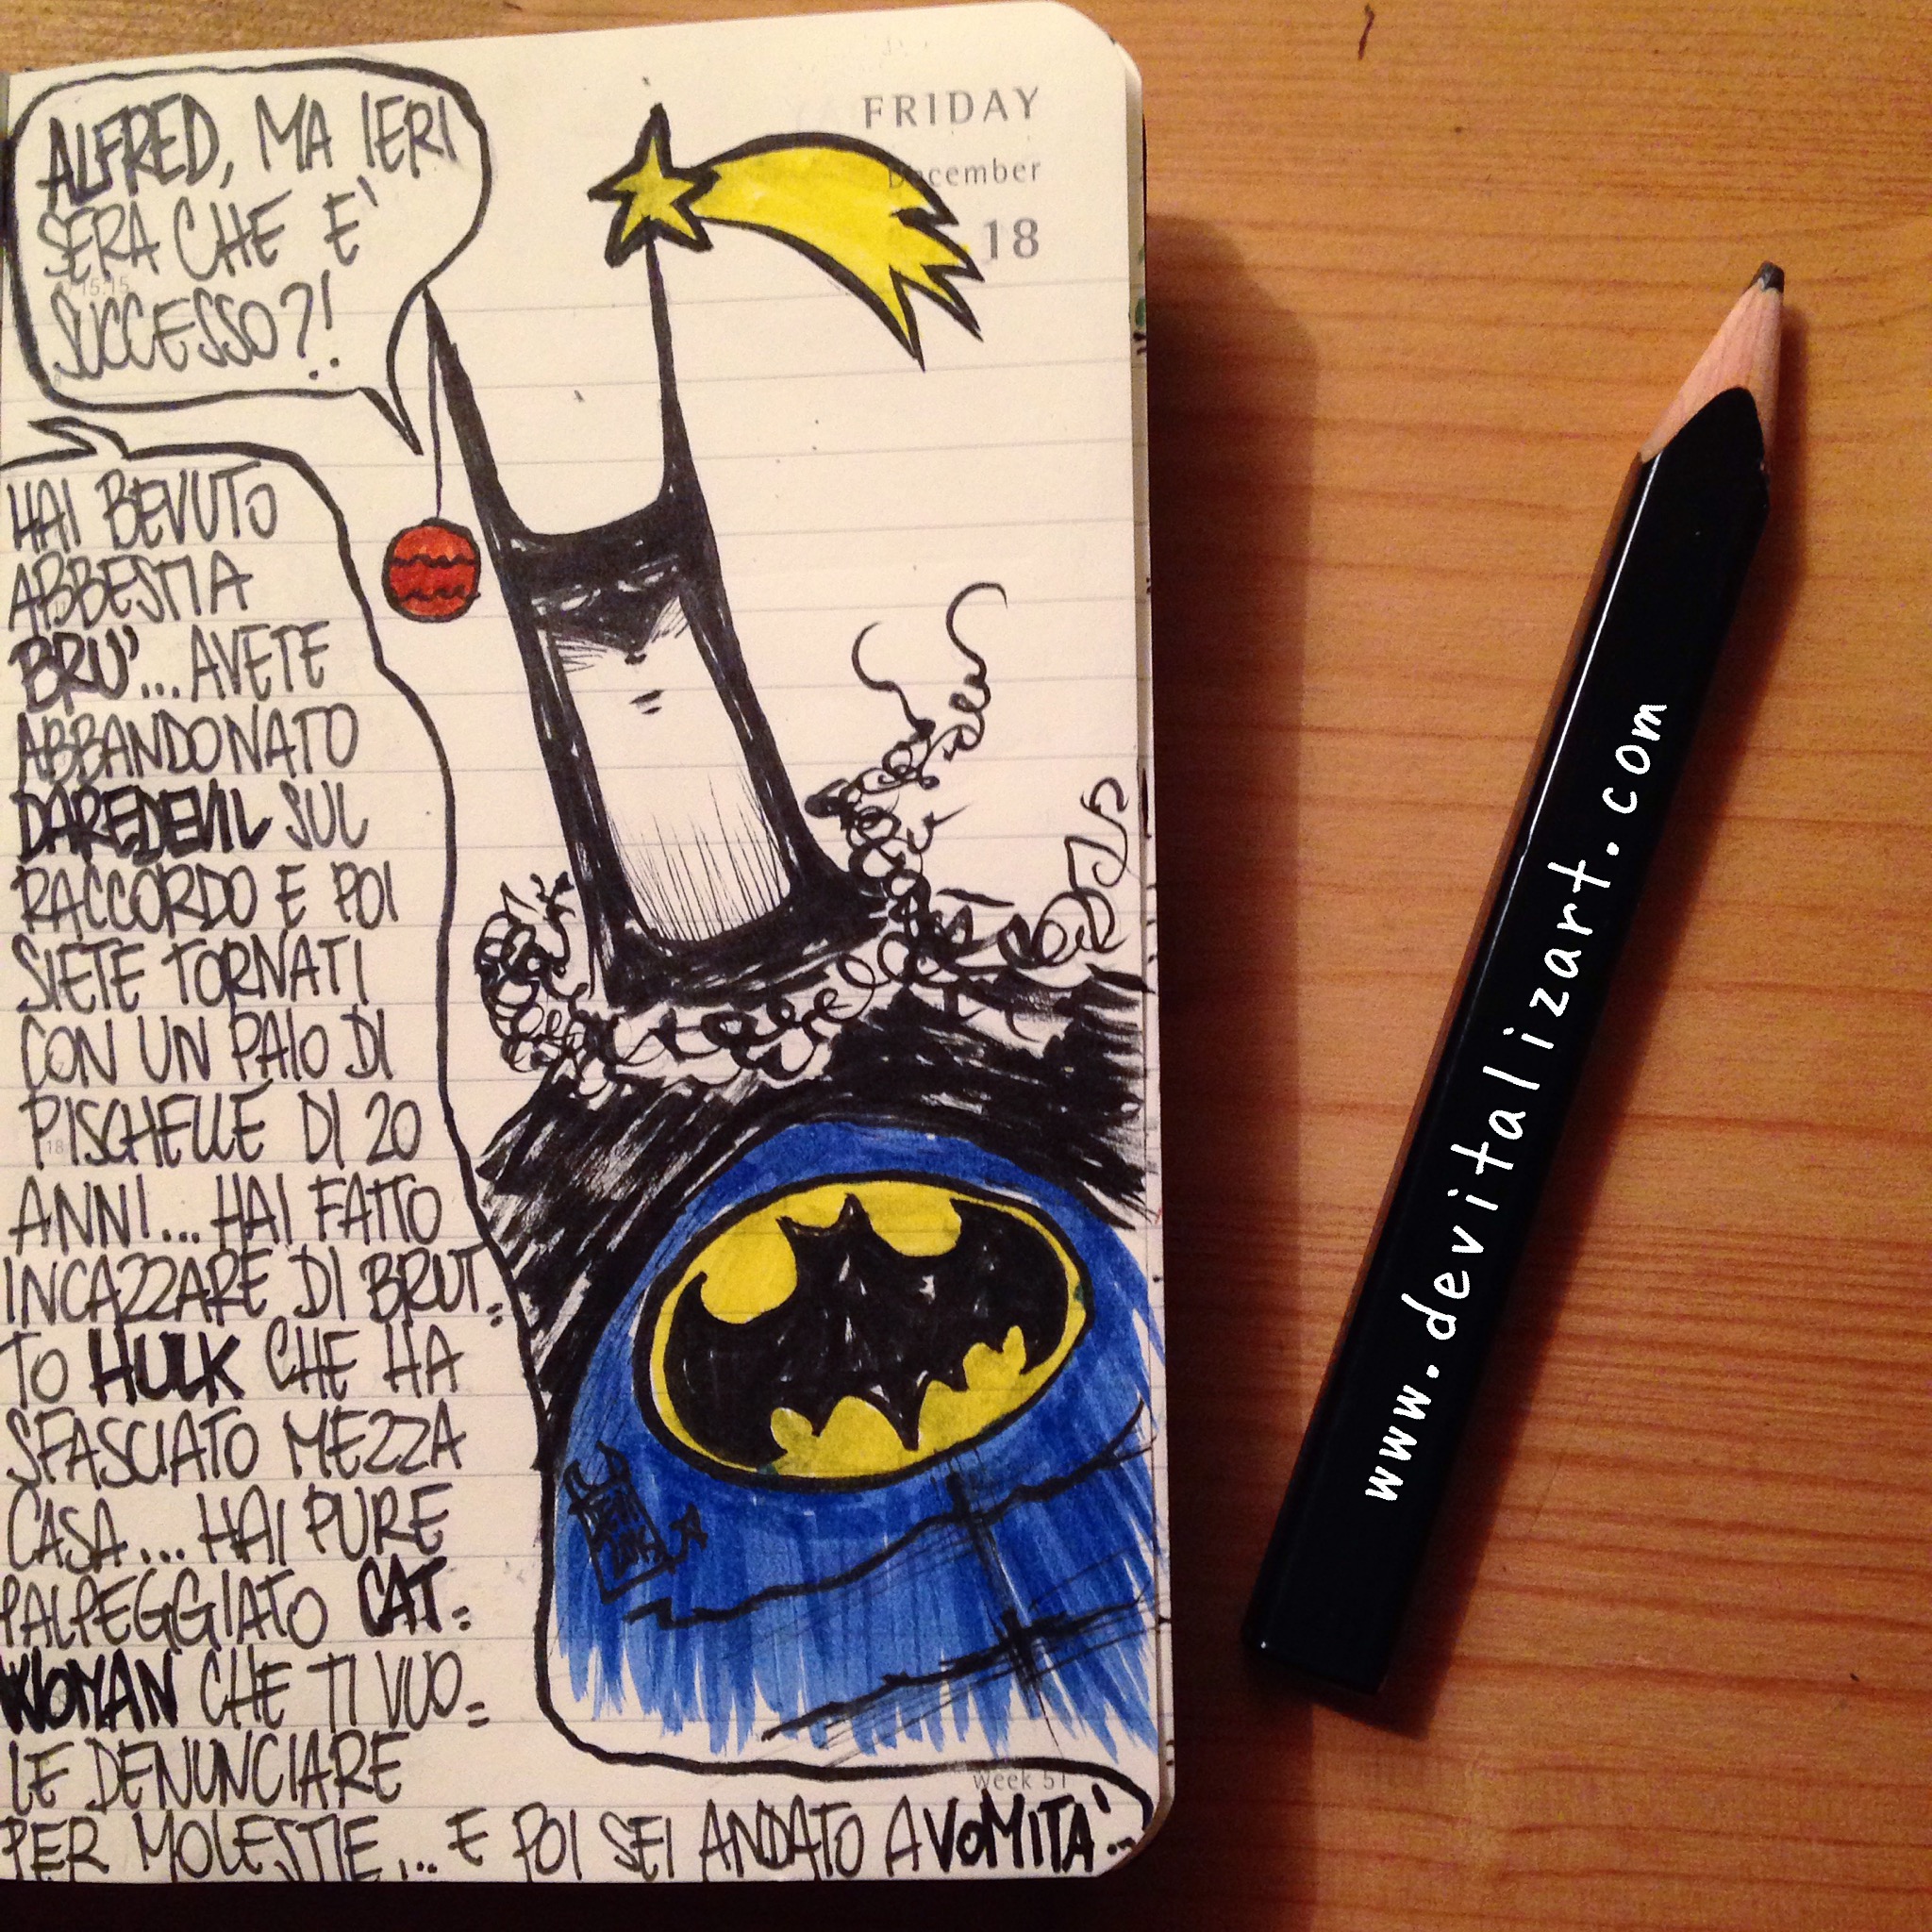 ALFRED, MA IERI
SERA CHE E'
SUCCESSO?!
FRIDAY
December
18
HAI BEVUTO
ABBESTIA
BRU'... AVETE
ABBANDONATO
DAREDEVIL SUL
RACCORDO E POI
SIETE TORNATI
CON UN PAIO DI
PISCHELLE DI 20
ANNI... HAI FATTO
INCAZZARE DI BRUT=
TO HULK CHE HA
SFASCIATO MEZZA
CASA... HAI PURE
PALPEGGIATO CAT=
WOMAN CHE TI VUO=
LE DENUNCIARE
PER MOLESTIE... E POI SEI ANDATO A VOMITA'...
Week 51
www.devitalizart.com